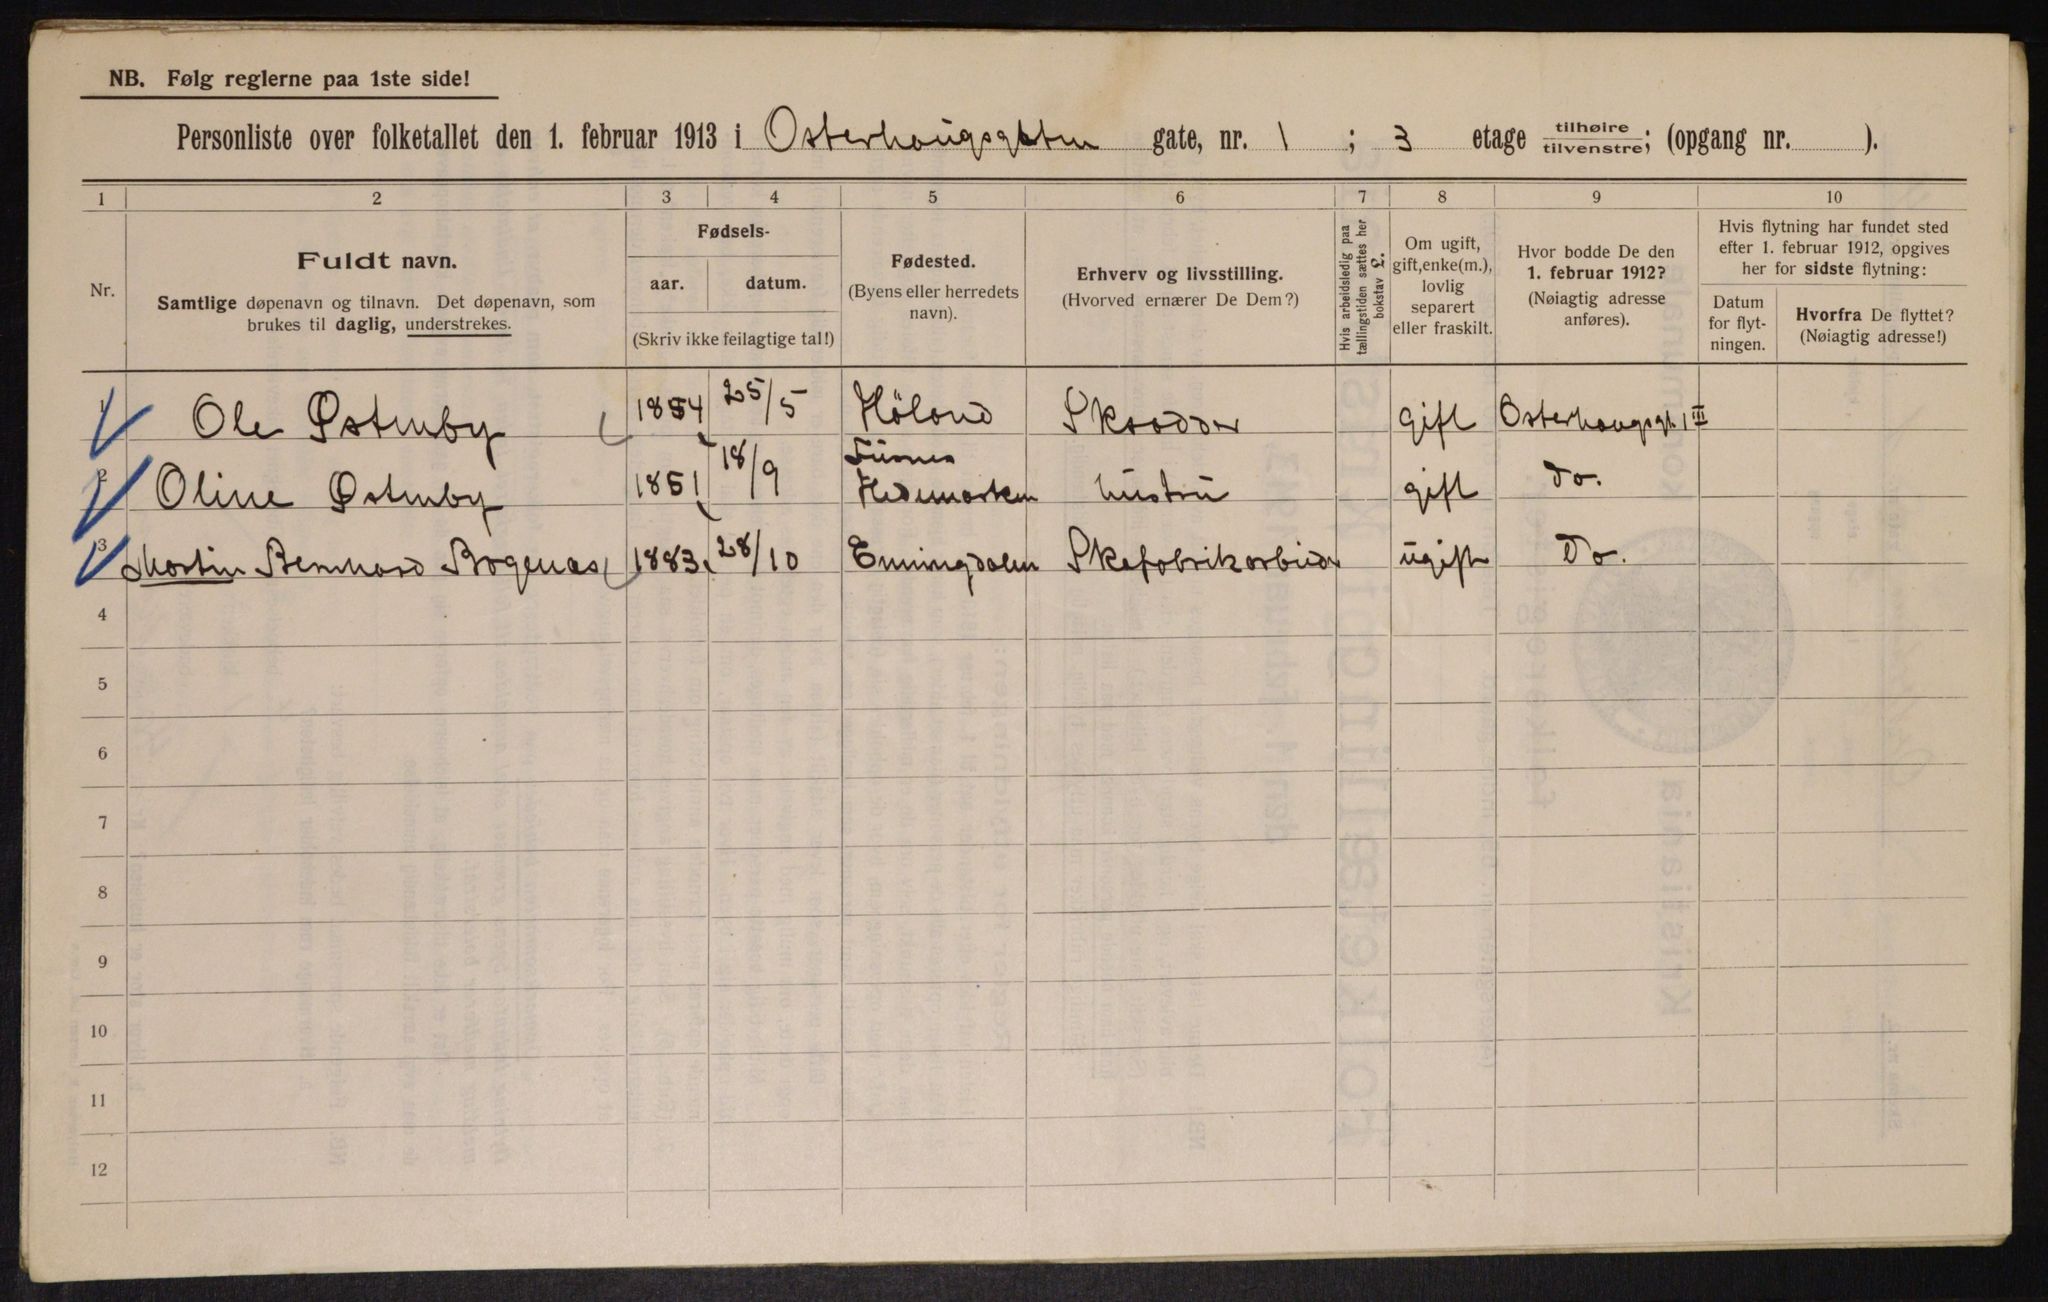 NB. Følg reglerne paa 1ste side!
Personliste over folketallet den 1. februar 1913 i Osterhougsgaten gate, nr. 1 ; 3 etage tilhøire tilvenstre; (opgang nr. ).
1 2 3 4 5 6 7 8 9 10
Nr.
Fuldt navn.
Samtlige døpenavn og tilnavn. Det døpenavn, som
brukes til daglig, understrekes.
Fødsels-
aar. datum.
(Skriv ikke feilagtige tal!)
Fødested.
(Byens eller herredets
navn).
Erhverv og livsstilling.
(Hvorved ernærer De Dem?)
Hvis arbeidsledig paa
tællingstiden sættes her
bokstav L.
Om ugift,
gift, enke(m.),
lovlig
separert
eller fraskilt.
Hvor bodde De den
1. februar 1912?
(Nøiagtig adresse
anføres).
Hvis flytning har fundet sted
efter 1. februar 1912, opgives
her for sidste flytning:
Datum
for flyt-
ningen.
Hvorfra De flyttet?
(Nøiagtig adresse!)
1 Ole Østmby 1854 25/5 Høland Skrædder gift Osterhougsgt. 1 III
2 Oline Østmby 1851 18/9 Furnes Hedemarken hustru gift Do.
3 Martin Bernhard Bogenæs 1883 28/10 Enningdalen Skofabrikarbeider ugift Do.
4
5
6
7
8
9
10
11
12